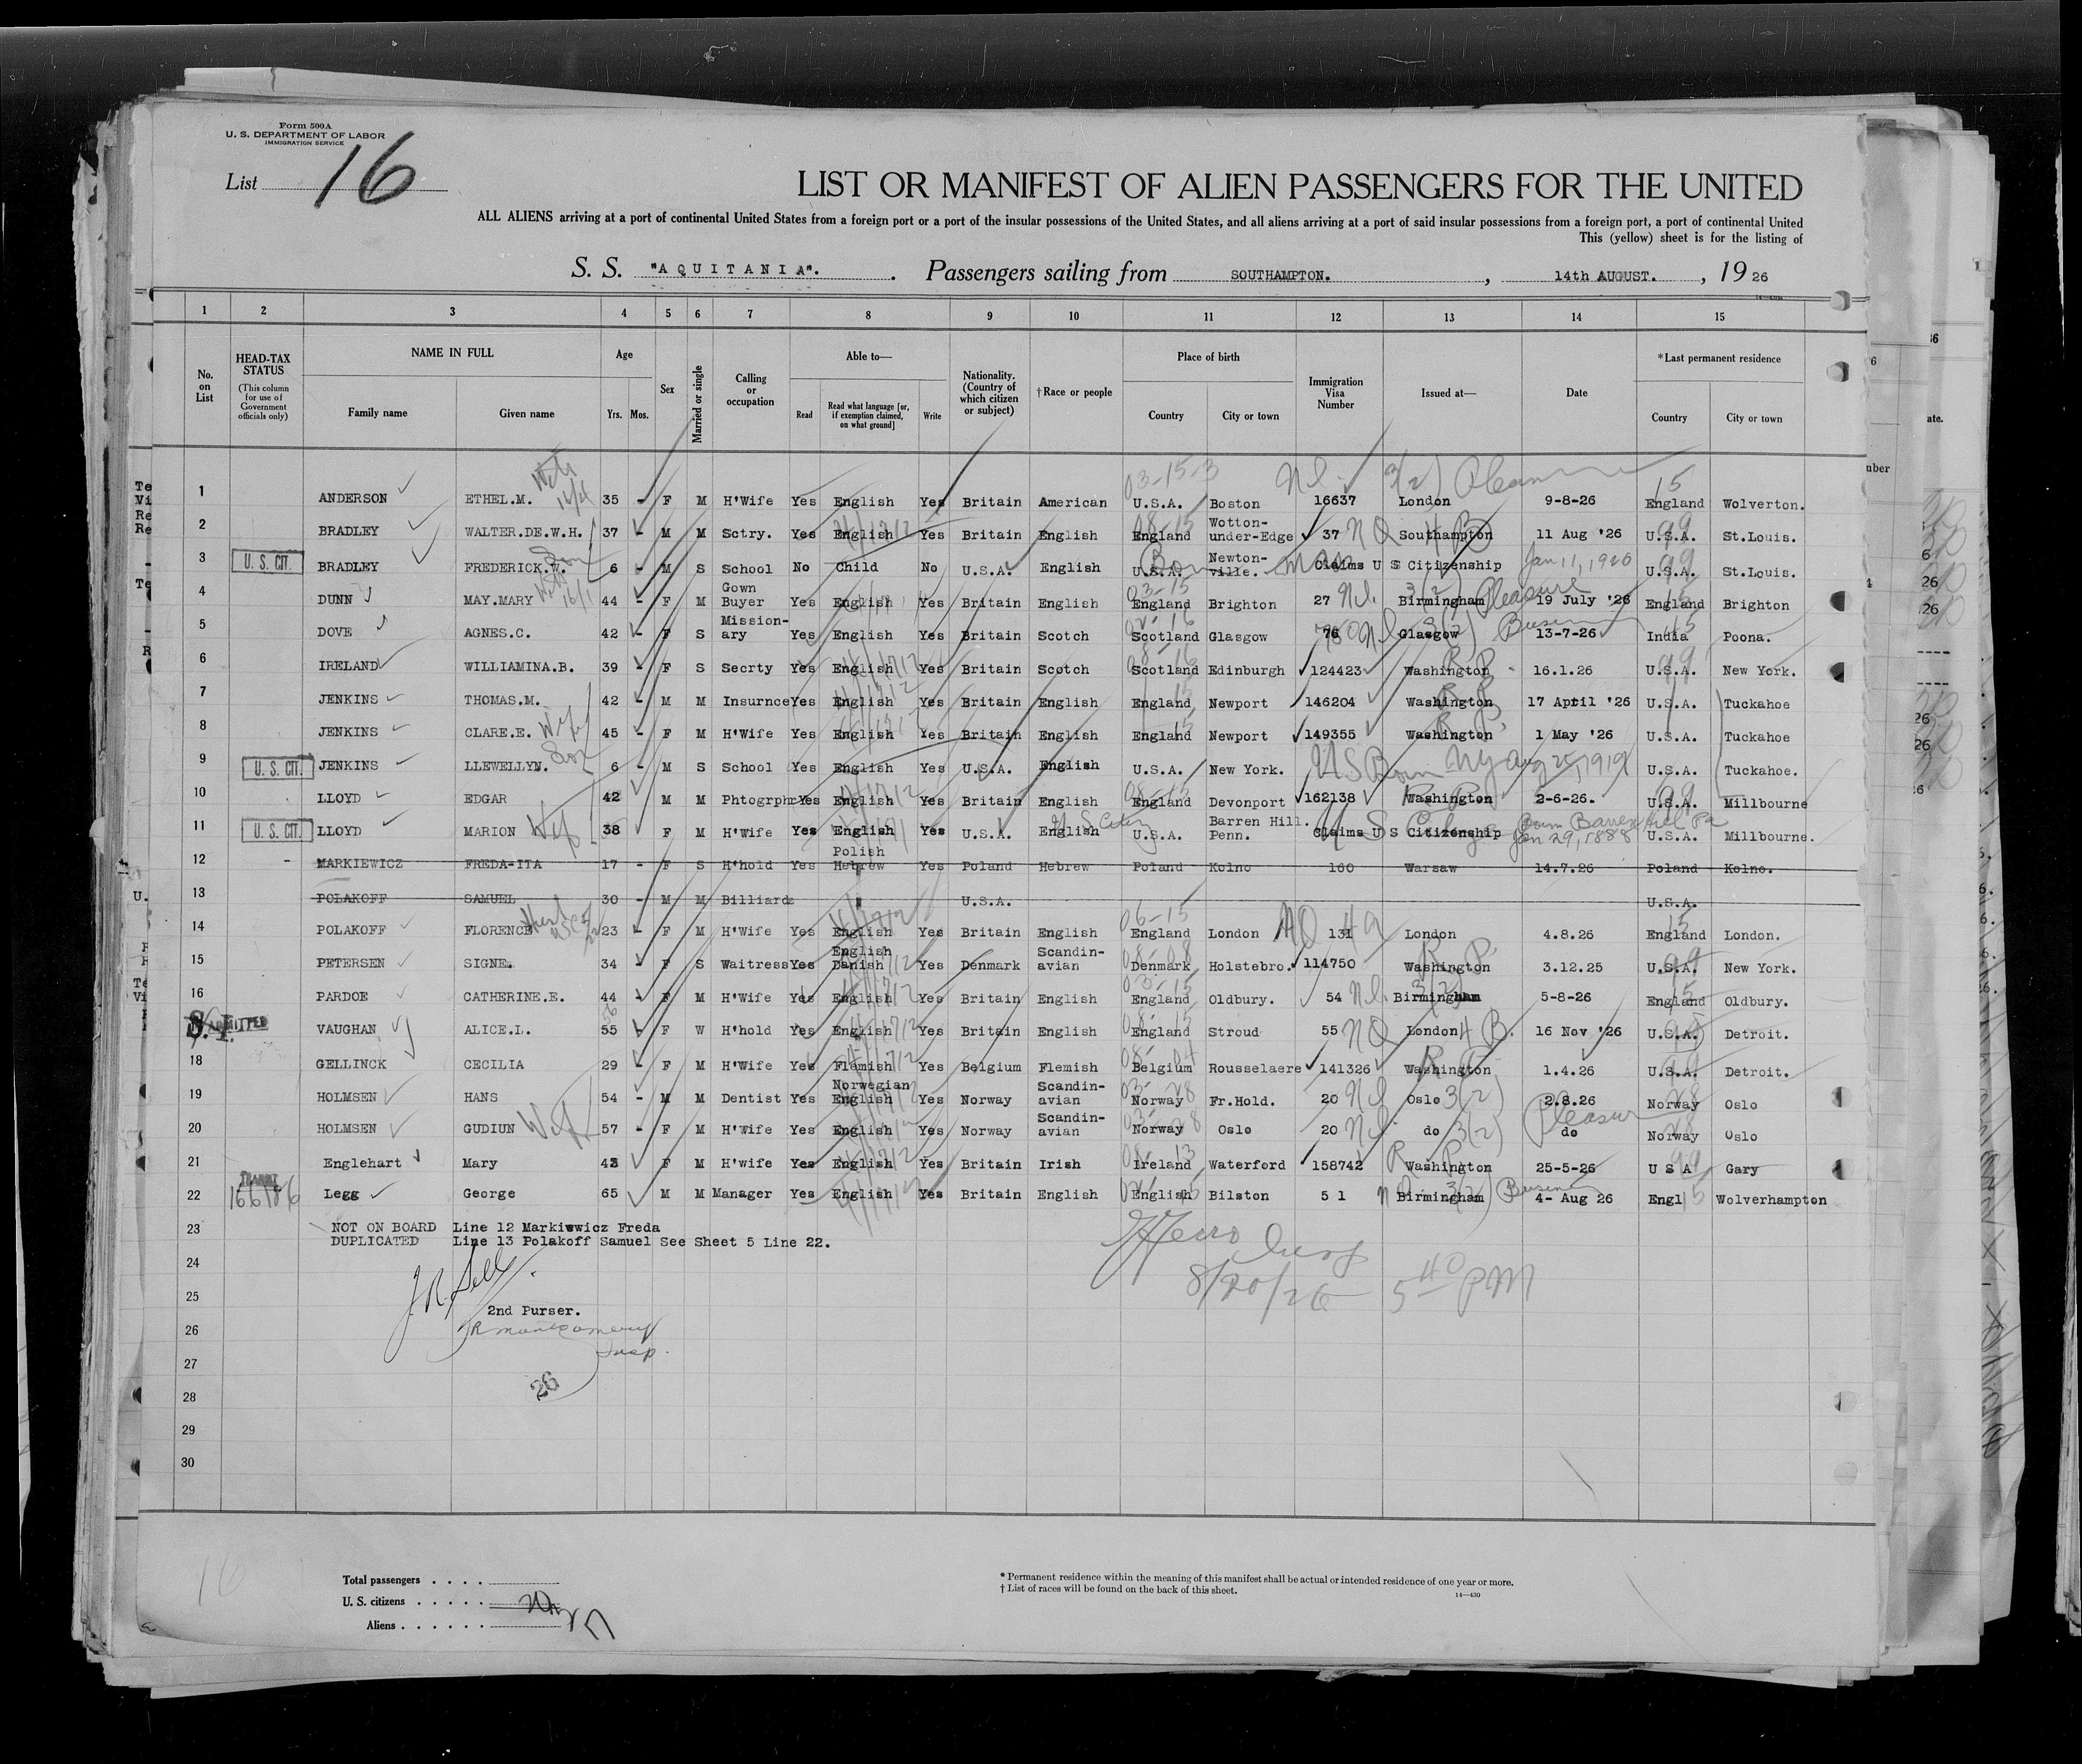 Form 500 A
U. S. DEPARTMENT OF LABOR
IMMIGRATION SERVICE
List 16
LIST OR MANIFEST OF ALIEN PASSENGERS FOR THE UNITED
ALL ALIENS arriving at a port of continental United States from a foreign port or a port of the insular possessions of the United States, and all aliens arriving at a port of said insular possessions from a foreign port, a port of continental United
This (yellow) sheet is for the listing of
S. S. "AQUITANIA". Passengers sailing from SOUTHAMPTON. , 14th AUGUST. , 19 26
1 2 3 4 5 6 7 8 9 10 11 12 13 14 15
No. on List
HEAD-TAX STATUS (This column for use of Government officials only)
NAME IN FULL Family name Given name
Age Yrs. Mos.
Sex
Married or single
Calling or occupation
Able to— Read Read what language [or, if exemption claimed, on what ground] Write
Nationality. (Country of which citizen or subject)
†Race or people
Place of birth Country City or town
Immigration Visa Number
Issued at—
Date
*Last permanent residence Country City or town
1 ANDERSON ETHEL.M. 35 - F M H'Wife Yes English Yes Britain American U.S.A. Boston 16637 London 9-8-26 England Wolverton.
2 BRADLEY WALTER.DE.W.H. 37 - M M Sctry. Yes English Yes Britain English England Wotton-under-Edge 37 Southampton 11 Aug '26 U.S.A. St.Louis.
3 U. S. CIT. BRADLEY FREDERICK.W. 6 - M S School No Child No U.S.A. English U.S.A. Newton-ville. Claims U S Citizenship Jan 11, 1920 U.S.A. St.Louis.
4 DUNN MAY.MARY 44 - F M Gown Buyer Yes English Yes Britain English England Brighton 27 Birmingham Pleasure 19 July '26 England Brighton
5 DOVE AGNES.C. 42 - F S Mission-ary Yes English Yes Britain Scotch Scotland Glasgow 76 Glasgow 13-7-26 India Poona.
6 IRELAND WILLIAMINA.B. 39 - F S Secrty Yes English Yes Britain Scotch Scotland Edinburgh 124423 Washington 16.1.26 U.S.A. New York.
7 JENKINS THOMAS.M. 42 - M M Insurnce Yes English Yes Britain English England Newport 146204 Washington 17 April '26 U.S.A. Tuckahoe
8 JENKINS CLARE.E. Wife 45 - F M H'Wife Yes English Yes Britain English England Newport 149355 Washington 1 May '26 U.S.A. Tuckahoe
9 U. S. CIT. JENKINS LLEWELLYN. Son 6 - M S School Yes English Yes U.S.A. English U.S.A. New York. US Born NY Aug 25, 1919 U.S.A. Tuckahoe.
10 LLOYD EDGAR 42 M M Phtogrphr Yes English Yes Britain English England Devonport 162138 Washington 2-6-26. U.S.A. Millbourne
11 U. S. CIT. LLOYD MARION Wife 38 F M H'Wife Yes English Yes U.S.A. English U.S.A. Barren Hill. Penn. Claims U S Citizenship Born Barren Hill Pa Jan 29, 1888 U.S.A. Millbourne.
12 - MARKIEWICZ FREDA-ITA 17 - F S H'hold Yes Polish Hebrew Yes Poland Hebrew Poland Kolno 160 Warsaw 14.7.26 Poland Kolno.
13 POLAKOFF SAMUEL 30 - M M Billiards U.S.A. U.S.A.
14 POLAKOFF FLORENCE 23 - F M H'Wife Yes English Yes Britain English England London 131 London 4.8.26 England London.
15 PETERSEN SIGNE. 34 - F S Waitress Yes English Danish Yes Denmark Scandin-avian Denmark Holstebro. 114750 Washington 3.12.25 U.S.A. New York.
16 PARDOE CATHERINE.E. 44 - F M H'Wife Yes English Yes Britain English England Oldbury. 54 Birmingham 5-8-26 England Oldbury.
ADMITTED VAUGHAN ALICE.L. 55 F W H'hold Yes English Yes Britain English England Stroud 55 London 16 Nov '26 U.S.A. Detroit.
18 GELLINCK CECILIA 29 - F M H'Wife Yes Flemish Yes Belgium Flemish Belgium Rousselaere 141326 Washington 1.4.26 U.S.A. Detroit.
19 HOLMSEN HANS 54 - M M Dentist Yes Norwegian English Yes Norway Scandin-avian Norway Fr.Hold. 20 Oslo 2.8.26 Norway Oslo
20 HOLMSEN GUDIUN Wife 57 - F M H'Wife Yes English Yes Norway Scandin-avian Norway Oslo 20 do Pleasure do Norway Oslo
21 Englehart Mary 43 F M H'wife Yes English Yes Britain Irish Ireland Waterford 158742 Washington 25-5-26 U S A Gary
22 TRANSIT Legg George 65 M M Manager Yes English Yes Britain English English Bilston 5 1 Birmingham 4- Aug 26 Engl Wolverhampton
23 NOT ON BOARD Line 12 Markiewicz Freda
DUPLICATED Line 13 Polakoff Samuel See Sheet 5 Line 22.
24
25 8/20/26 5 40 PM
2nd Purser.
26 R Montgomery
Insp.
27
28 26
29
30
Total passengers . . . .
U. S. citizens . . . . .
Aliens . . . . . .
* Permanent residence within the meaning of this manifest shall be actual or intended residence of one year or more.
† List of races will be found on the back of this sheet.
14—430